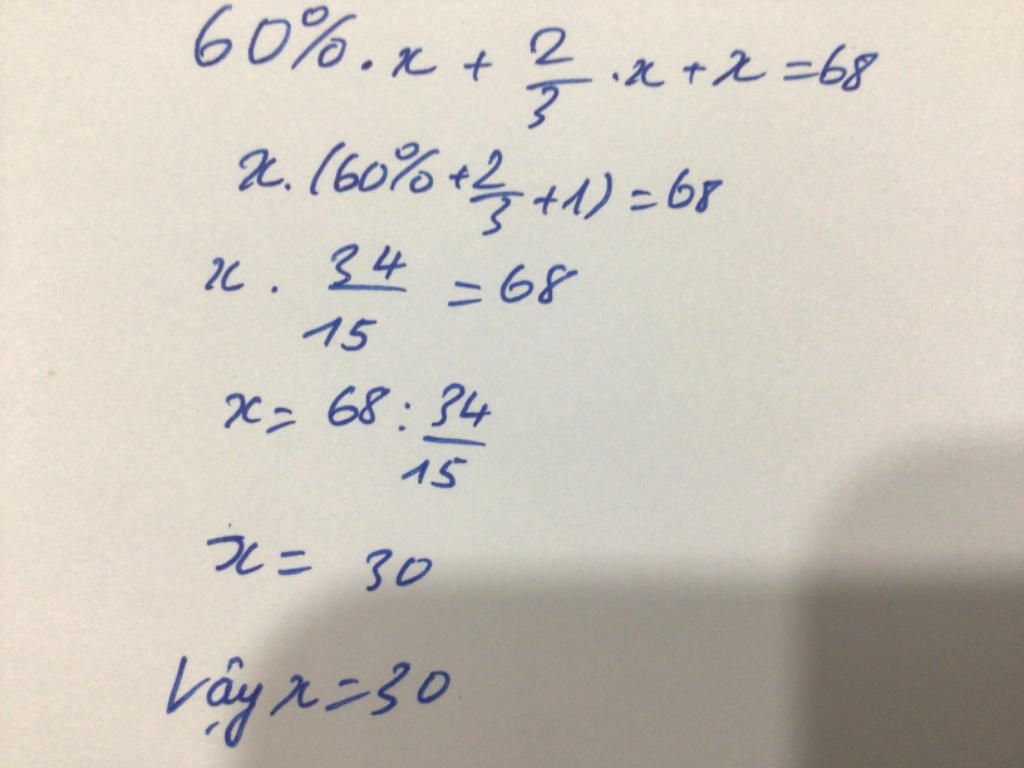 60%.x + 2/3 .x + x = 68
x.(60% + 2/3 + 1) = 68
x . 34/15 = 68
x = 68 : 34/15
x = 30
Vậy x = 30